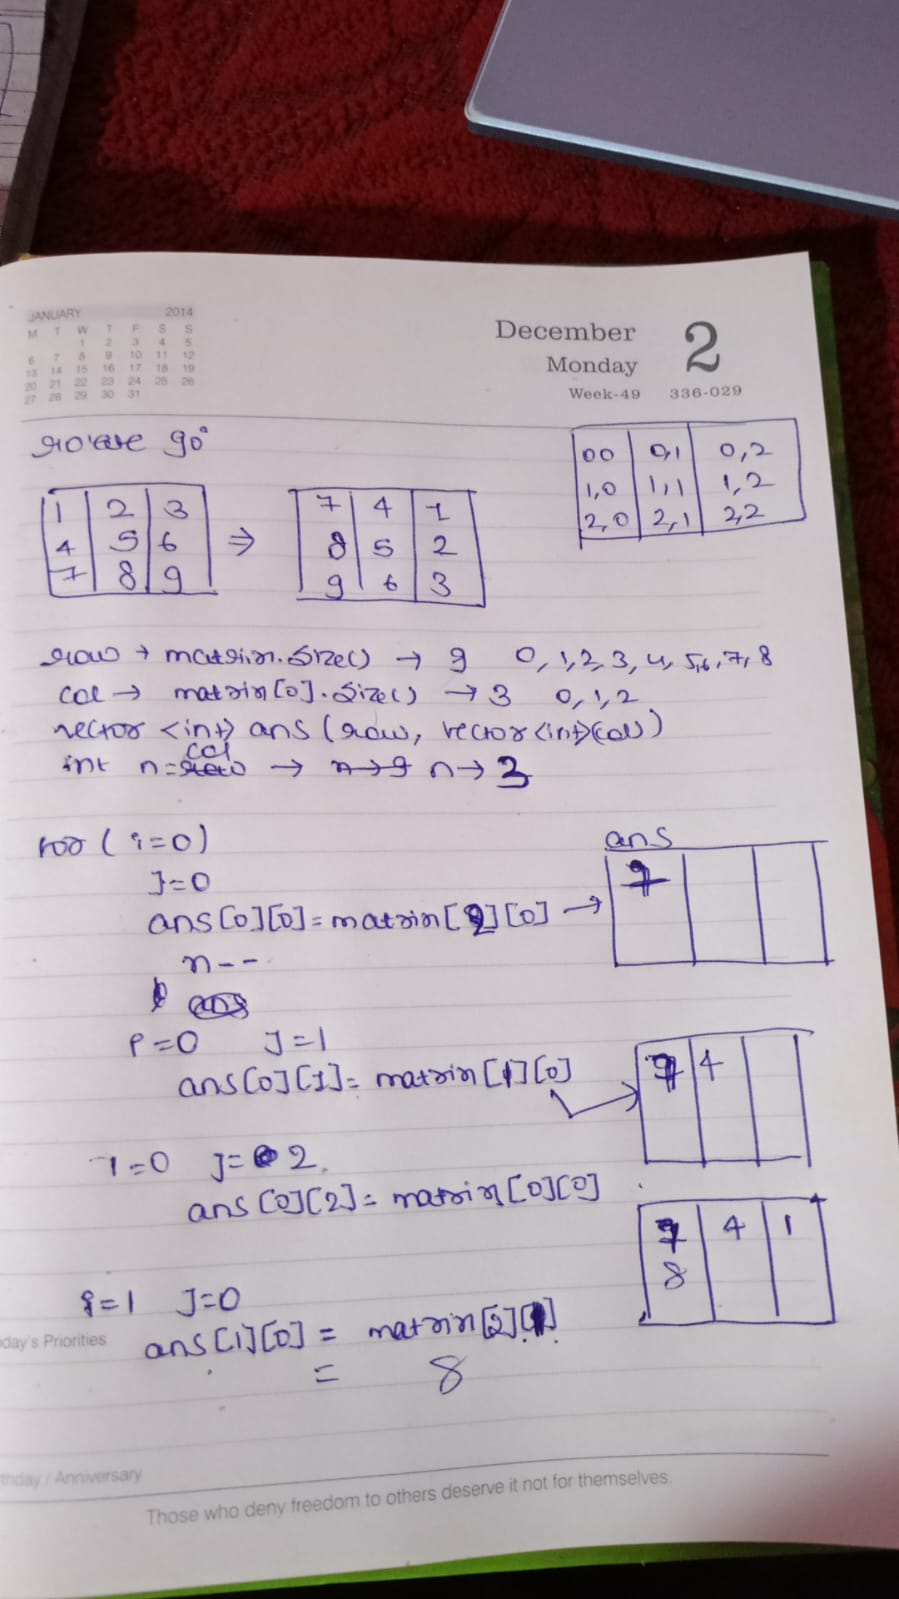 JANUARY 2014
M T W T F S S
1 2 3 4 5
6 7 8 9 10 11 12
13 14 15 16 17 18 19
20 21 22 23 24 25 26
27 28 29 30 31
December 2
Monday
Week-49 336-029
90°
00 0,1 0,2
1,0 1,1 1,2
2,0 2,1 2,2
1 2 3
4 5 6
7 8 9
⇒
7 4 1
8 5 2
9 6 3
row → matrix.size() → 9 0,1,2,3,4,5,6,7,8
col → matrix[0].size() → 3 0,1,2
vector <int> ans (row, vector<int>(col)
int n=col → n→9 n→3
for (i=0)
J=0
ans[0][0]=matrix[2][0] →
ans
7
n--
i=0 J=1
ans[0][1]= matrix[1][0]
7 4
i=0 J=2
ans[0][2]= matrix[0][0]
7 4 1
8
i=1 J=0
ans[1][0] = matrix[2][1]
= 8
day's Priorities
thday / Anniversary
Those who deny freedom to others deserve it not for themselves.